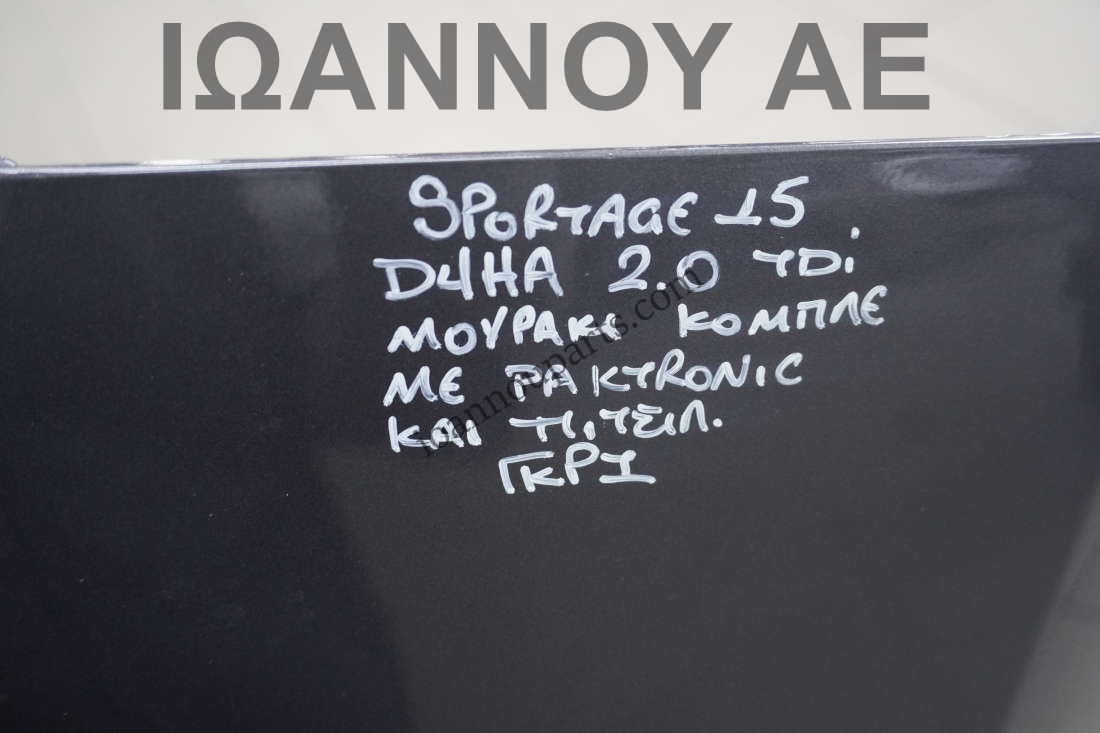 ΙΩΑΝΝΟΥ ΑΕ
SPORTAGE 15
D4HA 2.0 TDi
ΜΟΥΡΑΚΙ ΚΟΜΠΛΕ
ΜΕ PAKTRONIC
ΚΑΙ ΤΙ.ΤΣΙΛ.
ΓΚΡΙ
ioannouparts.com